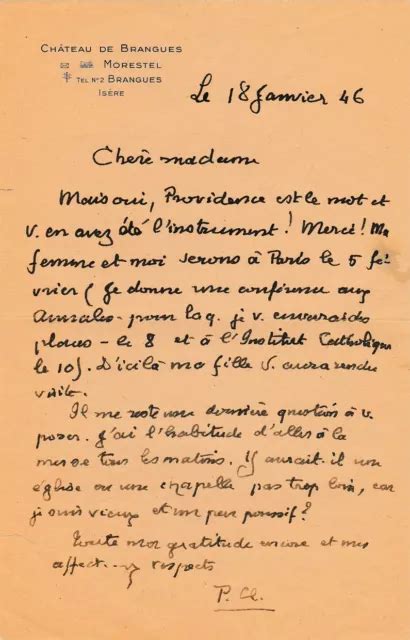 CHÂTEAU DE BRANGUES
MORESTEL
TEL Nº2 BRANGUES
ISÈRE
Le 18 Janvier 46
Chère madame
Mais oui, Providence est le mot et
v. en avez été l'instrument ! Merci ! Ma
femme et moi serons à Paris le 5 fé
vrier (Je donne une conférence aux
Annales - pour laq. je v. enverrai des
places - le 8 et à l'Institut Catholique
le 10). D'ici là ma fille v. aura rendu
visite.
Il me reste une dernière question à v.
poser. J'ai l'habitude d'aller à la
messe tous les matins. Y aurait-il une
église ou une chapelle pas trop loin, car
je suis vieux et un peu poussif ?
Toute ma gratitude encore et mes
affect. respects
P. Cl.